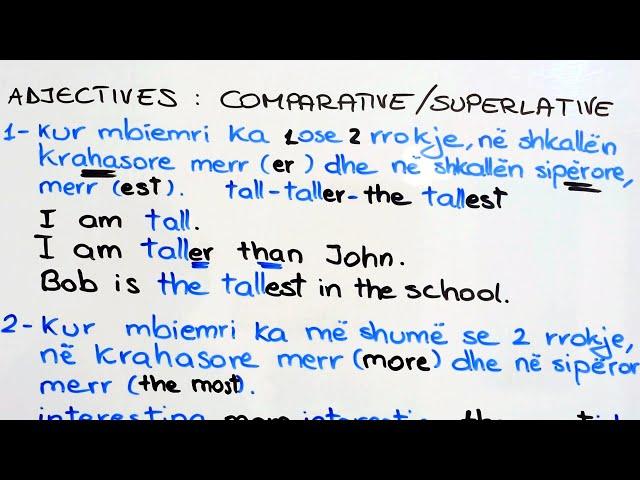 ADJECTIVES : COMPARATIVE/SUPERLATIVE
1- Kur mbiemri ka 1 ose 2 rrokje, në shkallën
krahasore merr (er) dhe në shkallën sipërore,
merr (est). tall-taller-the tallest
I am tall.
I am taller than John.
Bob is the tallest in the school.
2- Kur mbiemri ka më shumë se 2 rrokje,
në krahasore merr (more) dhe në sipëror
merr (the most).
interesting more interesting the